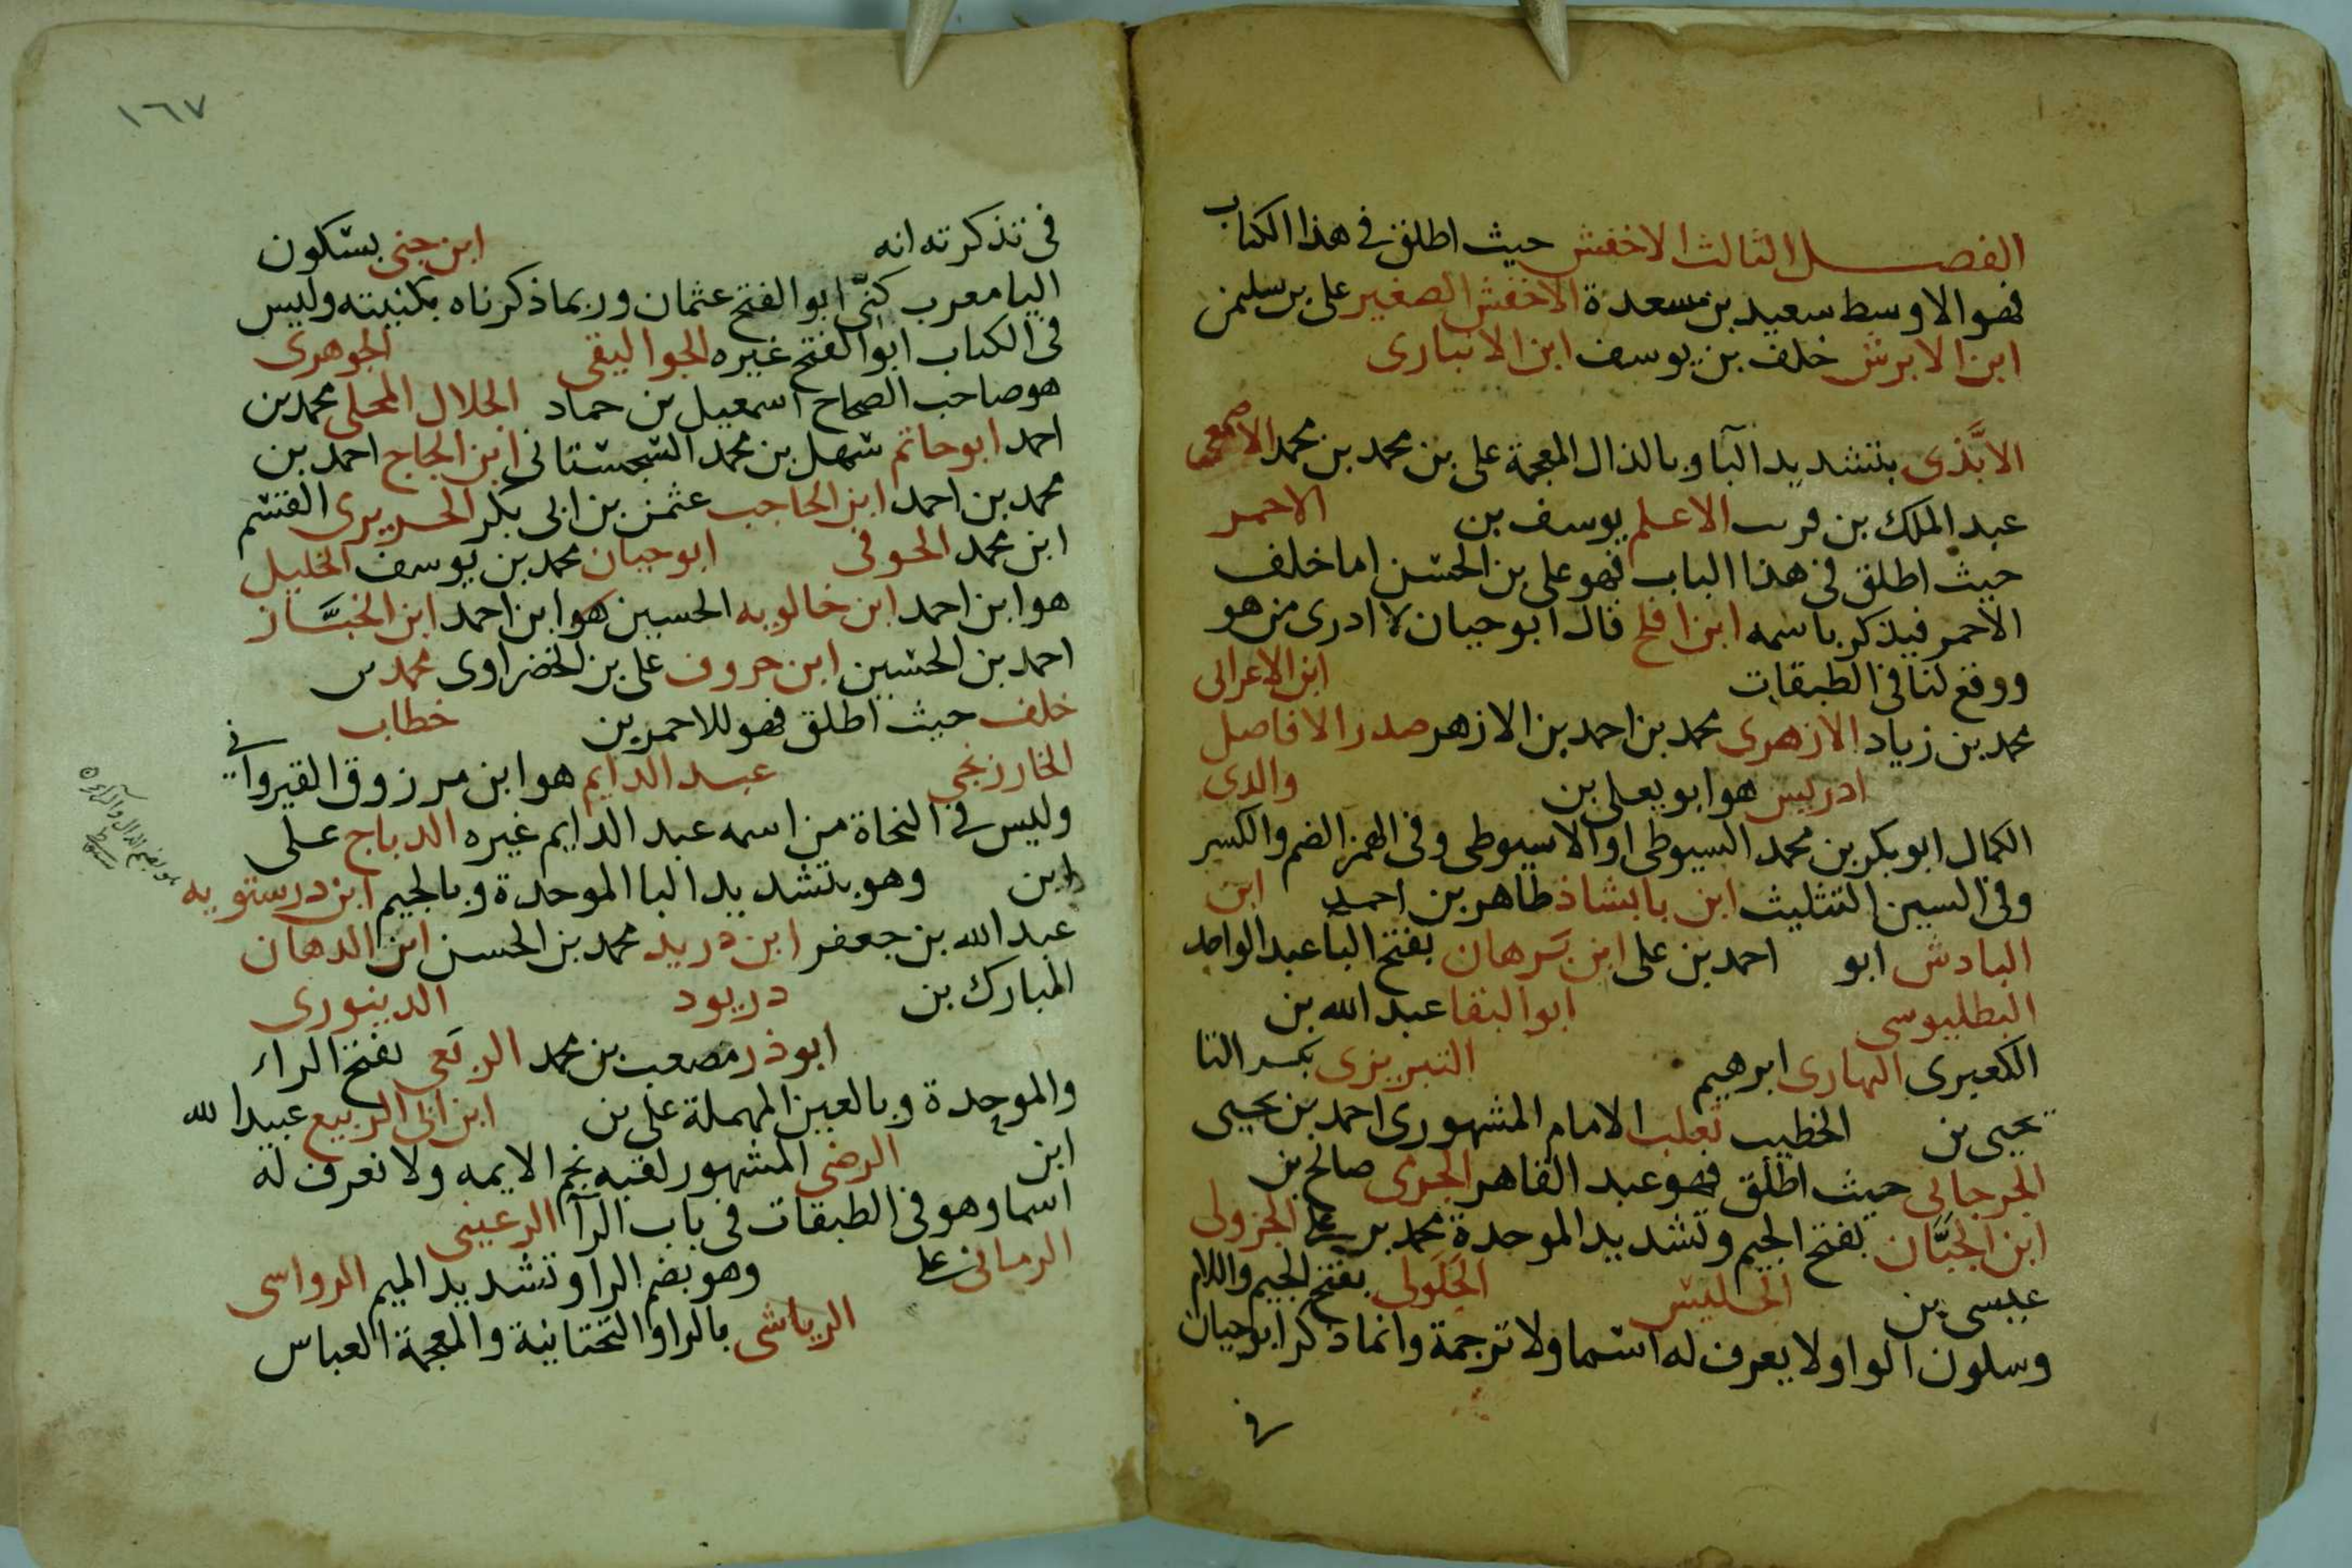 الفصل الثالث الاخفش حيث اطلق في هذا الكتاب
فهو الاوسط سعيد بن مسعدة الاخفش الصغير على بن سليمن
ابن الابرش خلف بن يوسف ابن الانبارى
الابَّذى بتشديد البا وبالذال المعجمة على بن محمد بن محمد الاصمعى
عبد الملك بن قريب الاعلم يوسف بن الاحمر
حيث اطلق في هذا الباب فهو على بن الحسن اما خلف
الاحمر فيذكر باسمه ابن افلح قال ابو حيان لا ادرى من هو
ووقع لنا في الطبقات ابن الاعرابى
محمد بن زياد الازهرى محمد بن احمد بن الازهر صدر الافاضل
ادريس هو ابو يعلى بن والدى
الكمال ابو بكر بن محمد السيوطى او الاسيوطى وفى الهمز الضم والكسر
وفى السين التثليث ابن بابشاذ طاهر بن احمد ابن
الباذش ابو احمد بن على ابن بَرهان بفتح البا عبد الواحد
البطليوسى ابو البقا عبد الله بن
العكبرى البهارى ابرهيم التبريزى بكسر التا
يحيى بن الخطيب ثعلب الامام المشهورى احمد بن يحيى
الجرجانى حيث اطلق فهو عبد القاهر الجرمى صالح بن
ابن الجَبَّان بفتح الجيم وتشديد الموحدة محمد بن على الجزولى
عيسى بن الجليس الجَلَولى بفتح الجيم واللام
وسكون الواو ولا يعرف له اسما ولا ترجمة وانما ذكر ابو حيان
في
١٦٧
في تذكرته انه ابن جنى بسكون
اليا معرب كنّى ابو الفتح عثمان وربما ذكرناه بكنيته وليس
في الكتاب ابو الفتح غيره الجواليقى الجوهرى
هو صاحب الصحاح اسمعيل بن حماد الجلال المحلى محمد بن
احمد ابو حاتم سهل بن محمد السجستانى ابن الحاج احمد بن
محمد بن احمد ابن الحاجب عثمن بن ابى بكر الحريرى القسم
ابن محمد الحوفى ابو حيان محمد بن يوسف الخليل
هو ابن احمد ابن خالويه الحسين هو ابن احمد ابن الخبَّاز
احمد بن الحسين ابن خروف على بن الخضراوى محمد بن
خلف حيث اطلق فهو للاحمر بن خطاب
الخارزنجى عبد الدايم هو ابن مرزوق القيروانى
وليس في النحاة من اسمه عبد الدايم غيره الدباج على
ابن وهو بتشديد البا الموحدة وبالجيم ابن درستويه
عبد الله بن جعفر ابن دريد محمد بن الحسن ابن الدهان
المبارك بن دريود الدينورى
ابو ذر مصعب بن محمد الربَعى بفتح الراء
والموحدة وبالعين المهملة على بن ابن ابى الربيع عبيد الله
ابن الرضى المشهور لقبه نجم الايمه ولا نعرف له
اسما وهو في الطبقات في باب الرآ الرعينى
الرمانى على وهو بضم الرا وتشديد الميم الرواسى
الرياشى بالرا والتحتانية والمعجمة العباس